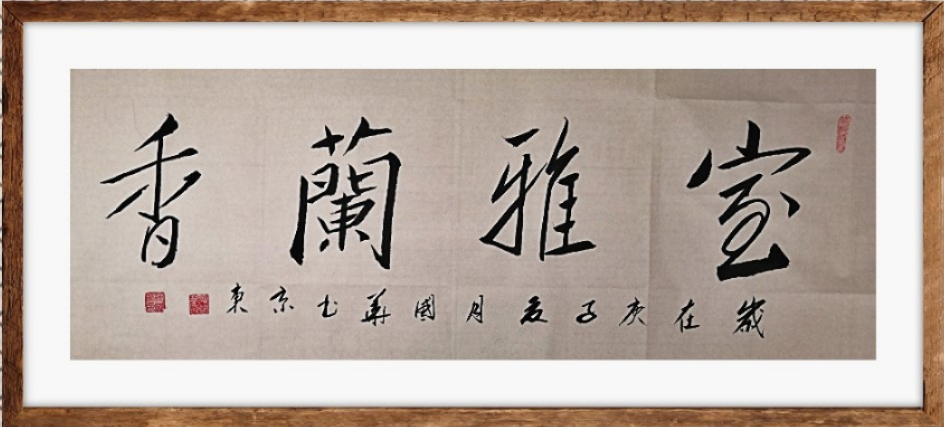 室雅蘭香
歲在庚子夏月國華书京東